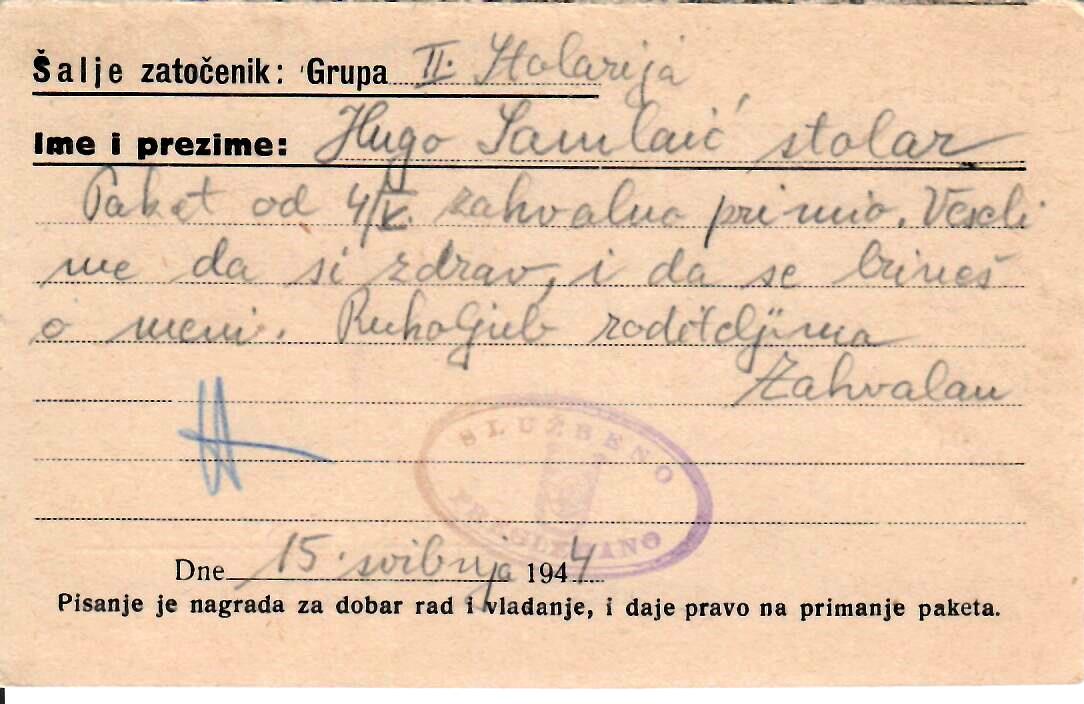 Šalje zatočenik: Grupa II. Stolarija
Ime i prezime: Hugo Samlaić stolar
Paket od 4/V. zahvalno primio. Veseli
me da si zdrav, i da se brineš
o meni. Rukoljub roditeljima
Zahvalan
SLUŽBENO
PREGLEDANO
Dne 15. svibnja 1944
Pisanje je nagrada za dobar rad i vladanje, i daje pravo na primanje paketa.